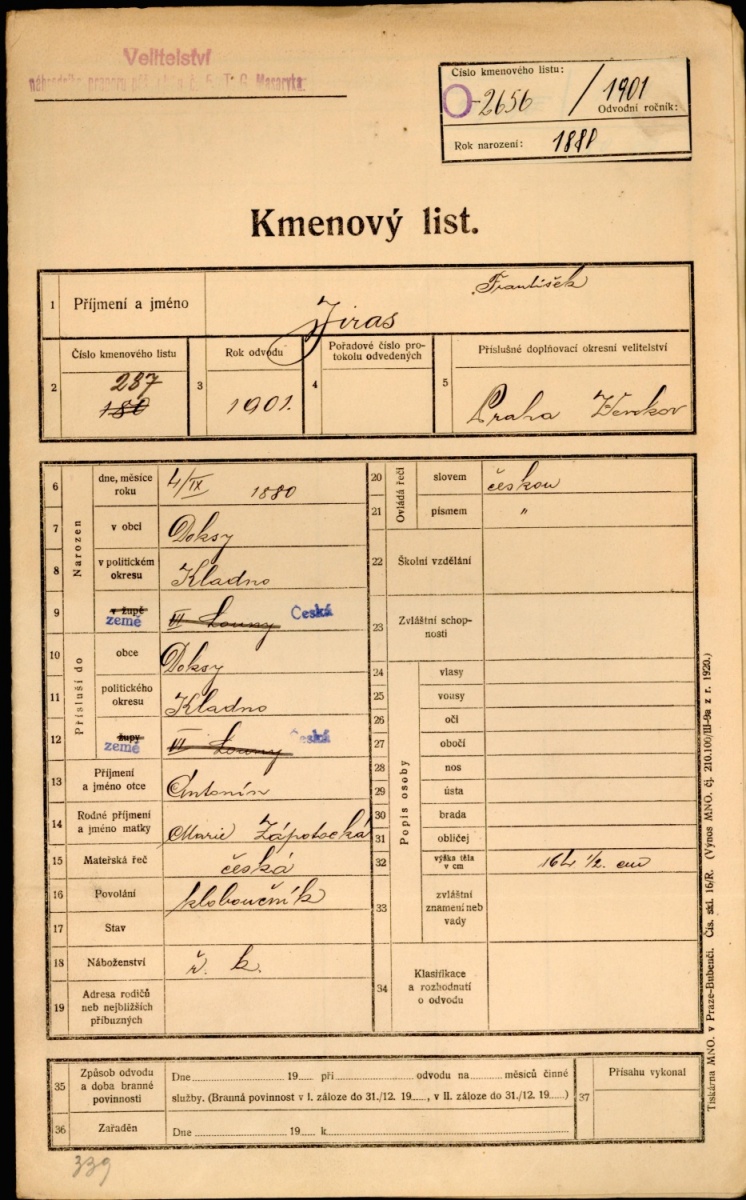 Velitelství
náhradního praporu pěšího pluku č. 5 T. G. Masaryka
Číslo kmenového listu:
O-2656 / 1901
Odvodní ročník:
Rok narození: 1880
Kmenový list.
1 Příjmení a jméno Jiras František
2 Číslo kmenového listu 287 180
3 Rok odvodu 1901.
4 Pořadové číslo protokolu odvedených
5 Příslušné doplňovací okresní velitelství Praha Venkov
Narozen
6 dne, měsíce roku 4/IX 1880
7 v obci Doksy
8 v politickém okresu Kladno
9 v župě země VI Louny Česká
Přísluší do
10 obce Doksy
11 politického okresu Kladno
12 župy země VI Louny Česká
13 Příjmení a jméno otce Antonín
14 Rodné příjmení a jméno matky Marie Zápotocká
15 Mateřská řeč česká
16 Povolání kloboučník
17 Stav
18 Náboženství ř. k.
19 Adresa rodičů neb nejbližších příbuzných
Ovládá řeči
20 slovem českou
21 písmem "
22 Školní vzdělání
23 Zvláštní schopnosti
Popis osoby
24 vlasy
25 vousy
26 oči
27 obočí
28 nos
29 ústa
30 brada
31 obličej
32 výška těla v cm 164 1/2 cm
33 zvláštní znamení neb vady
34 Klasifikace a rozhodnutí o odvodu
35 Způsob odvodu a doba branné povinnosti
Dne 19 při odvodu na měsíců činné
služby. (Branná povinnost v I. záloze do 31./12. 19....., v II. záloze do 31./12. 19.....)
36 Zařaděn Dne 19 k
37 Přísahu vykonal
Tiskárna MNO. v Praze-Bubenči. Čís. skl. 16/R. (Výnos MNO. čj. 210.100/III-9a z r. 1920.)
339